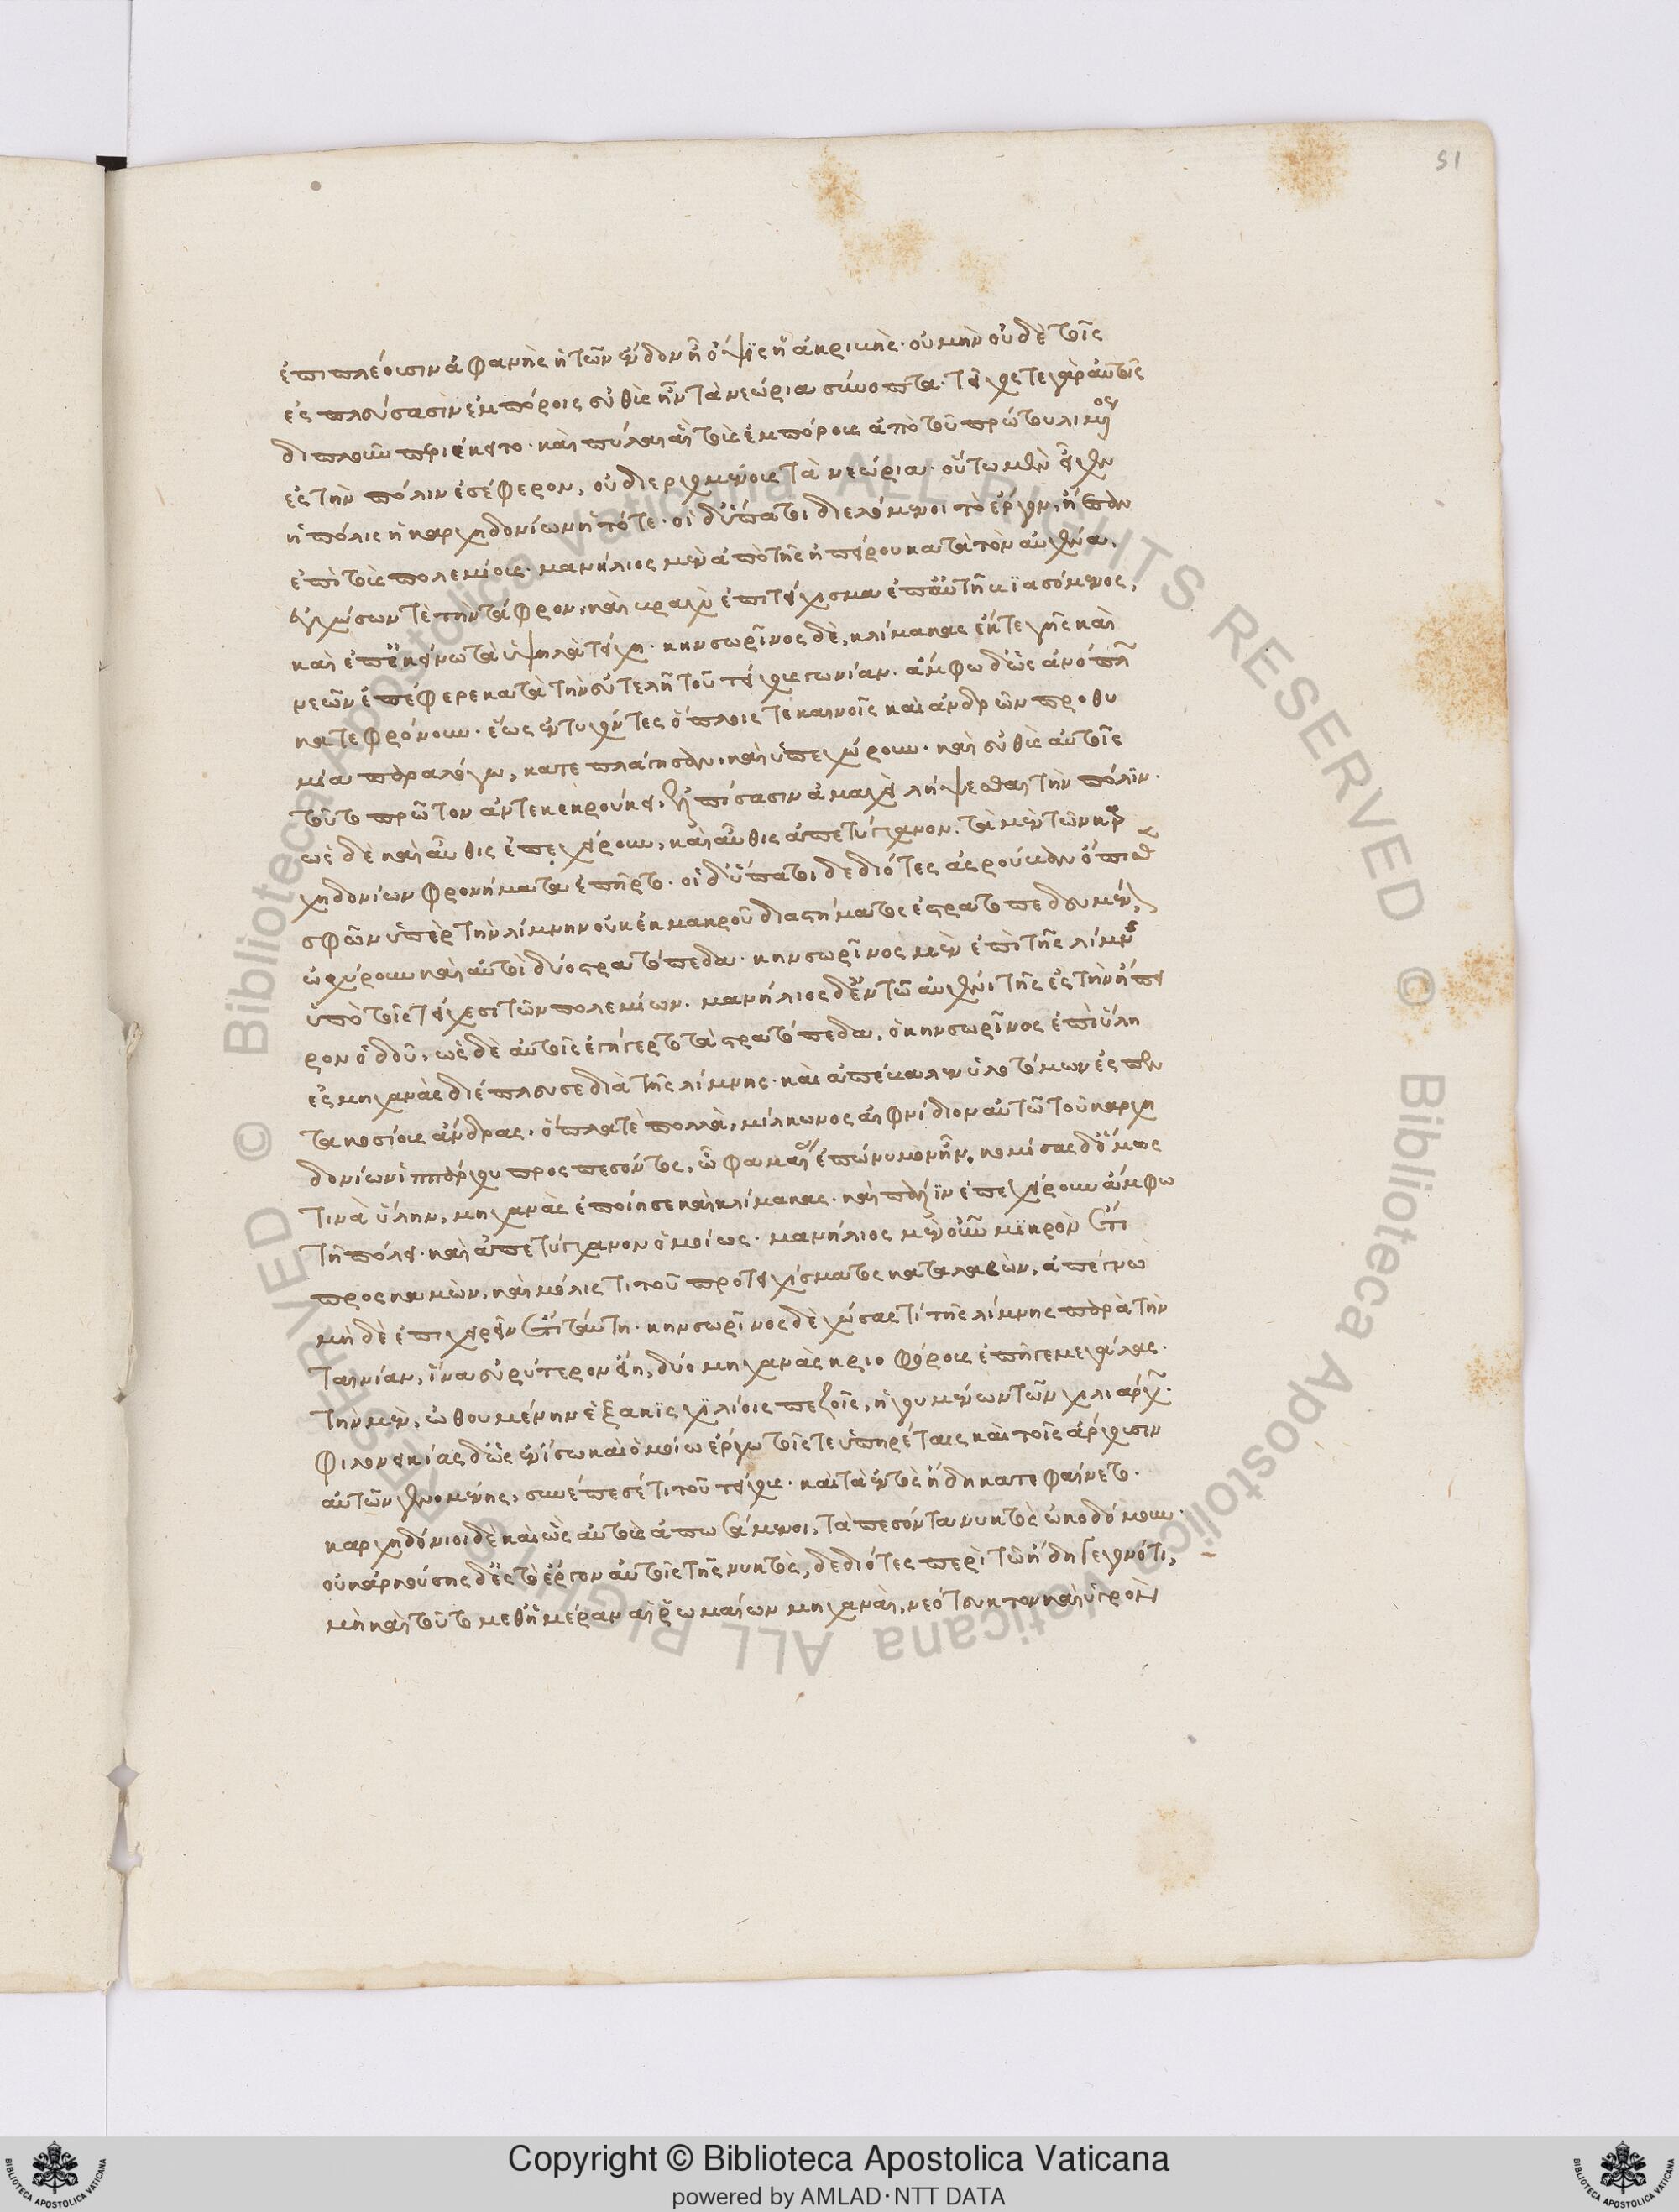 51
ἐπιπλέουσιν ἀφανὴς ἡ τῶν ἔνδον ᾖ ὄψϊς ἢ ἀκριβὴς. οὐ μὴν οὐδὲ τοῖς
ἐς πλεύσασιν ἐμπόροις εὐθὺς ἦν τὰ νεώρια σύνοπτα. τεῖχος τε γὰρ αὐτοῖς
διπλοῦν περιέκειτο. καὶ πύλαι αἳ τοὺς ἐμπόρους ἀπὸ τοῦ πρώτου λιμένος
ἐς τὴν πόλιν ἐσέφερον, οὐ διερχομένους τὰ νεώρια. οὕτω μὲν εἶχεν
ἡ πόλις ἡ καρχηδονίων ἡ τότε. οἱ δ' ὕπατοι διελόμενοι τὸ ἔργον, ᾔεσαν
ἐπὶ τοὺς πολεμίους. μανίλιος μὲν ἀπὸ τῆς ἠπείρου κατὰ τὸν αὐχένα,
ἐγχώσων τὲ τὴν τάφρον, καὶ βραχὺ ἐπιτείχισμα ἐπ' αὐτῇ βϊασόμενος,
καὶ ἐπ' ἐκείνω τὰ ὑψηλὰ τείχη. κηνσωρῖνος δὲ, κλίμακας ἔκ τε γῆς καὶ
νεῶν ἐπέφερε κατὰ τὴν εὐτελῆ τοῦ τείχους γωνίαν. ἄμφω δ' ὡς ἀνόπλων
κατεφρόνουν. ἕως ἐντυχόντες ὅπλοις τε καινοῖς καὶ ἀνδρῶν προθυ
μία παραλόγω, κατεπλάγησαν, καὶ ὑπεχώρουν. καὶ εὐθὺς αὐτοῖς
τοῦτο πρῶτον ἀντεκεκρούκει, ἐλπίσασιν ἀμαχεὶ λήψεσθαι τὴν πόλϊν.
ὡς δὲ καὶ αὖθις ἐπεχείρουν, καὶ αὖθις ἀπετύγχανον. τὰ μὲν τῶν καρ
χηδονίων φρονήματα ἐπῆρτο. οἱ δ' ὕπατοι δεδιότες ἀσρούβαν ὄπισθεν
σφῶν ὑπὲρ τὴν λίμνην οὐκ ἐκ μακροῦ διαστήματος ἐστρατοπεδευμένον,
ὠχύρουν καὶ αὐτοὶ δύο στρατόπεδα. κηνσωρῖνος μὲν ἐπὶ τῆς λίμνης
ὑπὸ τοῖς τείχεσι τῶν πολεμίων. μανίλιος δ' ἐν τῶ αὐχένι τῆς ἐς τὴν ἤπει
ρον ὁδοῦ, ὡς δὲ αὐτοῖς ἐγήγερτο τὰ στρατόπεδα, ὁ κηνσωρῖνος ἐπὶ ὕλη
ἐς μηχανὰς διέπλευσε διὰ τῆς λίμνης. καὶ ἀπέβαλεν ὑλοτόμων ἐς πεν
τακοσίους ἄνδρας. ὅπλα τὲ πολλὰ, μίλκωνος αἰφνίδιον αὐτῶ τοῦ καρχη
δονίων ἱππάρχου προςπεσόντος, ὧ φαμαίας ἐπώνυμον ἦν, κομίσας δ' ὅμως
τινὰ ὕλην, μηχανὰς ἐποίησε καὶ κλίμακας. καὶ πάλϊν ἐπεχείρουν ἄμφω
τῇ πόλει. καὶ ἀπετύγχανον ὁμοίως. μανίλιος μὲν οὖν μϊκρὸν ἔτι
προςκαμὼν, καὶ μόλις τι τοῦ προτειχίσματος καταλαβὼν, ἀπέγνω
μὴ δὲ ἐπιχειρεῖν ἔτι ταύτη. κηνσωρῖνος δὲ χώσας τί τῆς λίμνης παρὰ τὴν
ταινίαν, ἵνα εὐρύτερον εἴη, δύο μηχανὰς κριοφόρους ἐπῆγε μεγάλας.
τὴν μὲν, ὠθουμένην ἑξακϊς χϊλίοις πεζοῖς, ἡγουμένων τῶν χιλιάρχων.
φιλονεικίας δ' ὡς ἐν ἴσω καὶ ὁμοίω ἔργω τοῖς τε ὑπηρέταις καὶ τοῖς ἄρχουσιν
αὐτῶν γενομένης, συνέπεσέ τι τοῦ τείχους. καὶ τὰ ἐντὸς ἤδη κατεφαίνετο.
καρχηδόνιοι δὲ καὶ ὣς αὐτοὺς ἀπωσάμενοι, τὰ πεσόντα νυκτὸς ὠκοδόμουν.
οὐκ ἀρκούσης δ' ἐς τὸ ἔργον αὐτοῖς τῆς νυκτὸς, δεδιότες περὶ τῶ ἤδη γεγονότι,
μὴ καὶ τοῦτο μεθ' ἡμέραν αἱ ῥωμαίων μηχαναὶ, νεότευκτον καὶ ὑγρὸν
Copyright © Biblioteca Apostolica Vaticana
powered by AMLAD·NTT DATA